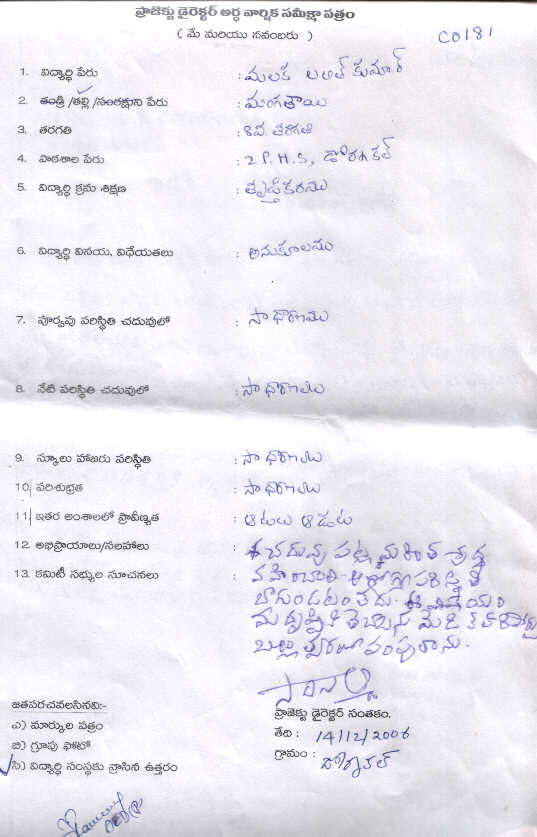 ప్రాజెక్టు డైరెక్టర్ అర్ధ వార్షిక సమీక్షా పత్రం
( మే మరియు నవంబరు )
C0181
1. విద్యార్థి పేరు : మలక లలిత్ కుమార్
2. తండ్రి/తల్లి/సంరక్షుని పేరు : మంగతాయి
3. తరగతి : 8వ తరగతి
4. పాఠశాల పేరు : Z P. H. S, డోర్నకల్
5. విద్యార్థి క్రమ శిక్షణ : తృప్తికరము
6. విద్యార్థి వినయ, విధేయతలు : అనుకూలము
7. పూర్వపు పరిస్థితి చదువులో : సాధారణము
8. నేటి పరిస్థితి చదువులో : సాధారణము
9. స్కూలు హాజరు పరిస్థితి : సాధారణము
10. పరిశుభ్రత : సాధారణము
11. ఇతర అంశాలలో ప్రావీణ్యత : ఆటలు ఆడుట
12. అభిప్రాయాలు/సలహాలు : చదువు పట్ల మరింత శ్రద్ధ
13. కమిటీ సభ్యుల సూచనలు : వహించాలి. ఆరోగ్య పరిస్థితి
బాగుండటం లేదు. ఈ విషయం
మా దృష్టికి తెచ్చిన మెడికల్
త్వరలో పంపుతాను.
జతపరచవలసినవి:-
ఎ) మార్కుల పత్రం
బి) గ్రూపు ఫోటో
సి) విద్యార్థి సంస్థకు వ్రాసిన ఉత్తరం
ప్రాజెక్టు డైరెక్టర్ సంతకం.
తేది : 14/12/2006
గ్రామం : డోర్నకల్